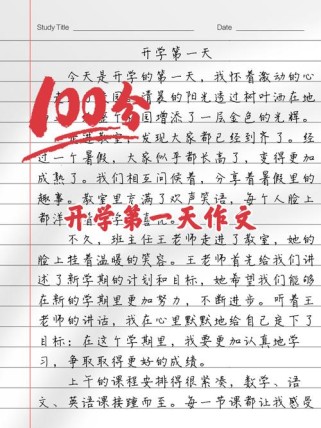 Study Title
Date
开学第一天
今天是开学的第一天，我怀着激动的心
清晨的阳光透过树叶洒在地
园增添了一层金色的光辉。
发现大家都已经到齐了。经
过一个暑假，大家似乎都长高了，变得更加
成熟了。我们相互问候着，分享着暑假里的
趣事。教室里充满了欢声笑语，每个人脸上
都洋
100分
开学第一天作文
不久，班主任王老师走进了教室，她的
脸上挂着温暖的笑容。王老师首先给我们讲
述了新学期的计划和目标，她希望我们能够
在新的学期里更加努力，不断进步。听着王
老师的讲话，我在心里默默地给自己定下了
目标：在这个学期里，我要更加认真地学
习，争取取得更好的成绩。
上午的课程安排得很紧凑，数学、语
文、英语课接踵而至。每一节课都让我感受